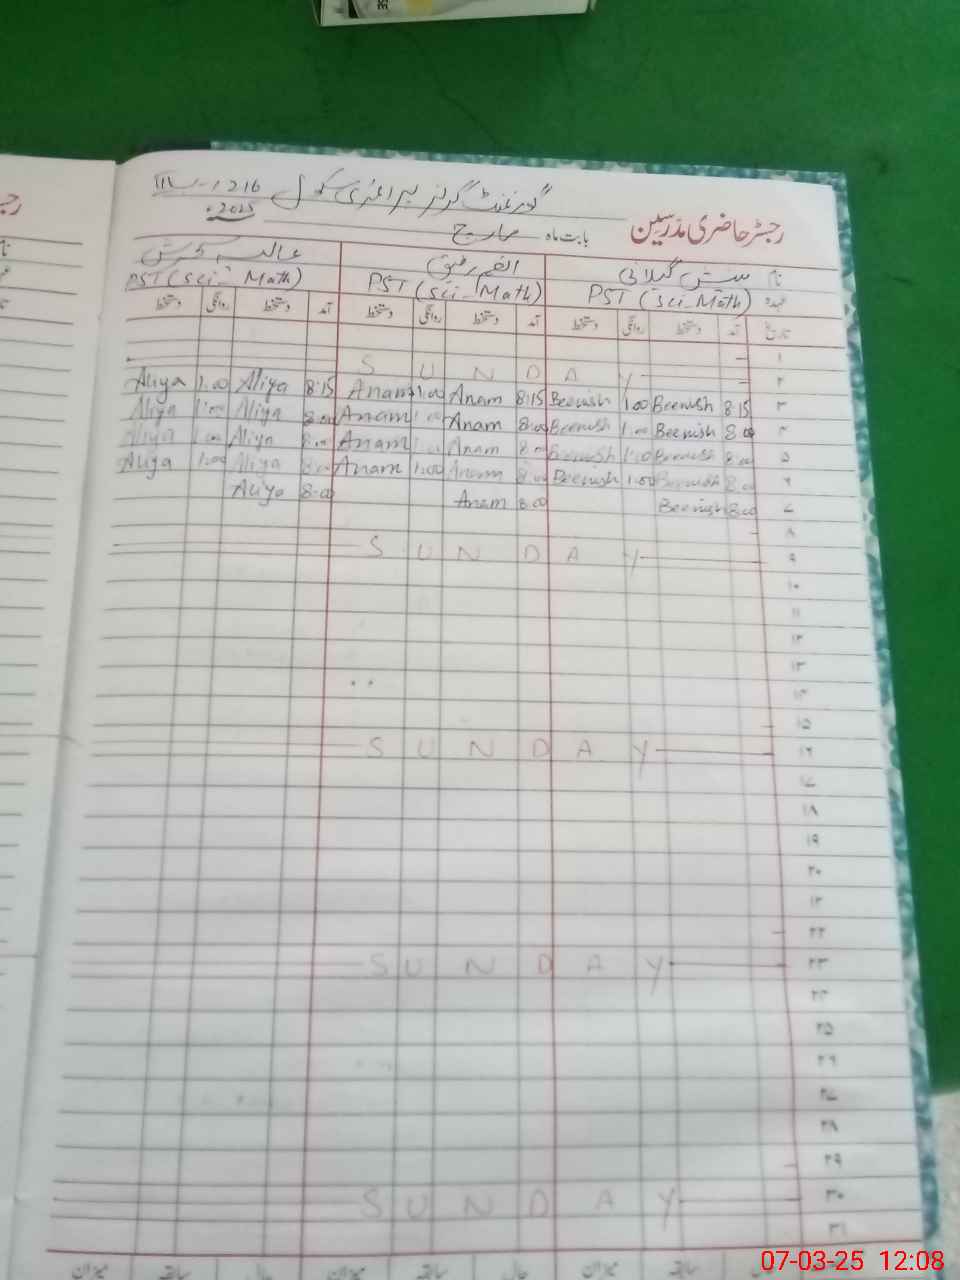 گورنمنٹ گرلز پرائمری سکول
2025
رجسٹر حاضری مدرسین
بابت ماہ مارچ
نام
PST (Sci-Math) PST (Sci-Math) PST (Sci-Math)
تاریخ آمد دستخط روانگی دستخط آمد دستخط روانگی دستخط آمد دستخط روانگی دستخط
۱
SUNDAY ۲
Aliya 1.00 Aliya 8:15 Anam 1.00 Anam 8:15 Beenish 1.00 Beenish 8:15 ۳
Aliya 1:00 Aliya 8.00 Anam 1.00 Anam 8:00 Beenish 1.00 Beenish 8.00 ۴
Aliya 1.00 Aliya 8.00 Anam 1.00 Anam 8.00 Beenish 1:00 Beenish 8.00 ۵
Aliya 1.00 Aliya 8.00 Anam 1.00 Anam 8.00 Beenish 1.00 Beenish 8.00 ۶
Aliya 8.00 Anam 8.00 Beenish 8.00 ۷
۸
SUNDAY ۹
۱۰
۱۱
۱۲
۱۳
۱۴
۱۵
SUNDAY ۱۶
۱۷
۱۸
۱۹
۲۰
۲۱
۲۲
SUNDAY ۲۳
۲۴
۲۵
۲۶
۲۷
۲۸
۲۹
SUNDAY ۳۰
۳۱
میزان سابقہ حال میزان سابقہ حال میزان سابقہ
07-03-25 12:08